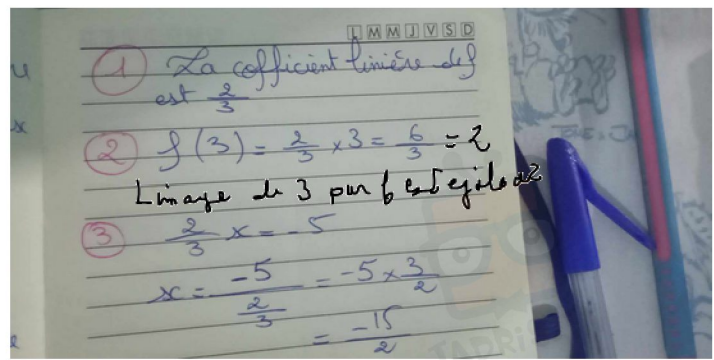 L M M J V S D
1 La cofficient liniére de f
est 2/3
2 f(3) = 2/3 × 3 = 6/3 = 2
L image de 3 par f est egale a 2
3 2/3 x = -5
x = -5/(2/3) = -5 × 3/2
= -15/2